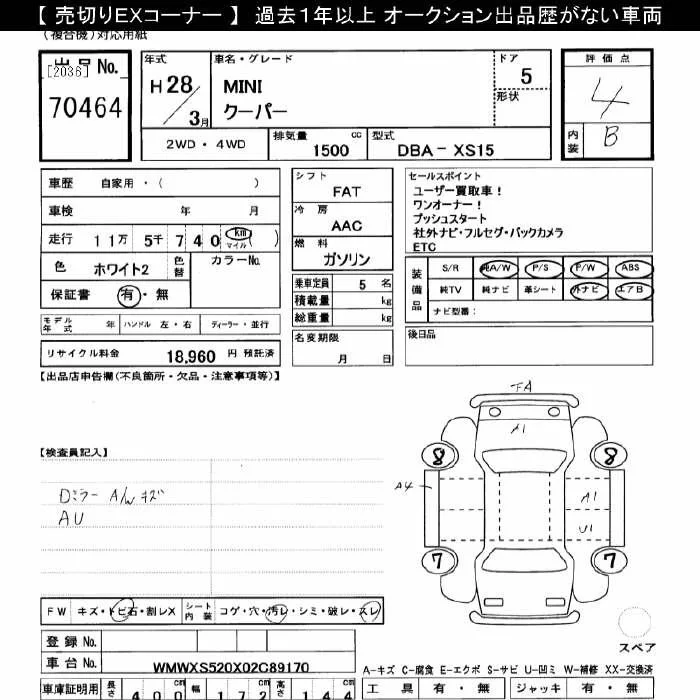 【 売切りEXコーナー 】 過去１年以上 オークション出品歴がない車両
(複合機)対応用紙
出品 No.
[2036]
70464
年式
H 28 / 3月
車名・グレード
MINI
クーパー
ドア
5
形状
評価点
4
内装
B
2WD・4WD
排気量 cc
1500
型式
DBA－XS15
車歴 自家用・( )
車検 年 月
走行 11万 5千 7 4 0 km マイル ( )
色 ホワイト2 色替 カラーNo.
保証書 有・無
モデル年式 年 ハンドル 左・右 ディーラー・並行
リサイクル料金 18,960 円 預託済
シフト
FAT
冷房
AAC
燃料
ガソリン
乗車定員 5 名
積載量 kg
総重量 kg
名変期限
月 日
セールスポイント
ユーザー買取車！
ワンオーナー！
プッシュスタート
社外ナビ・フルセグ・バックカメラ
ETC
装備品
S/R 純A/W P/S P/W ABS
純TV 純ナビ 革シート 外ナビ エアB
ナビ型番：
後日品
【出品店申告欄(不良箇所・欠品・注意事項等)】
【検査員記入】
Dミラー A/w キズ
AU
FA
A1
8
8
A4
A1
U1
7
7
スペア
FW キズ・トビ石・割レX シート内装 コゲ・穴・汚レ・シミ・破レ・スレ
登録 No.
車台 No. WMWXS520X02C89170
A－キズ C－腐食 E－エクボ S－サビ U－凹ミ W－補修 XX－交換済
車庫証明用 長さ 400 cm 幅 172 cm 高さ 144 cm
工具 有・無 ジャッキ 有・無